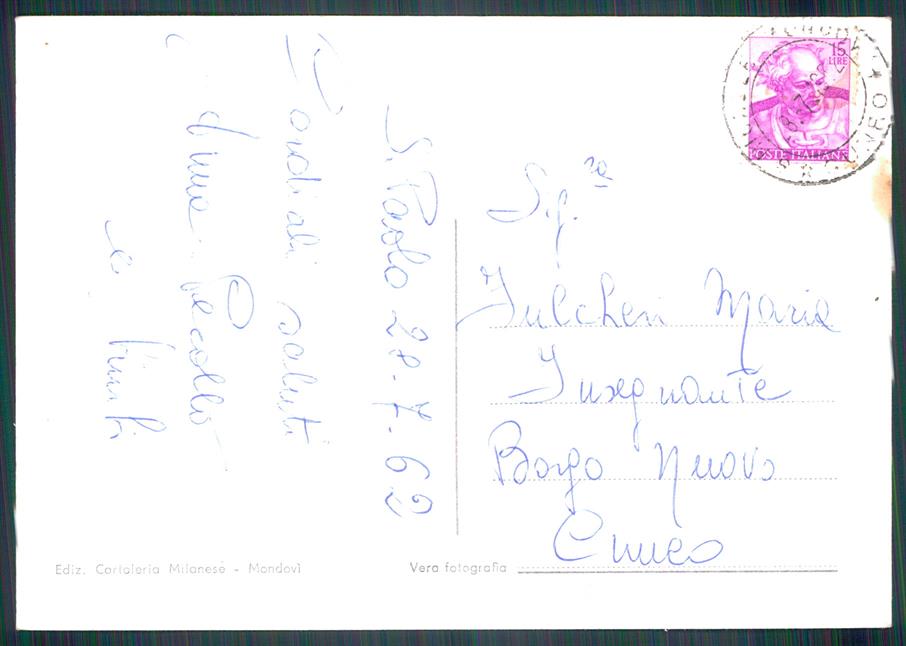 S. Paolo 28-7-62
Cordiali saluti
e
Sig.ra
Fulcheri Maria
Insegnante
Borgo Nuovo
Cuneo
15
LIRE
POSTE ITALIANE
Ediz. Cartoleria Milanese - Mondovì
Vera fotografia